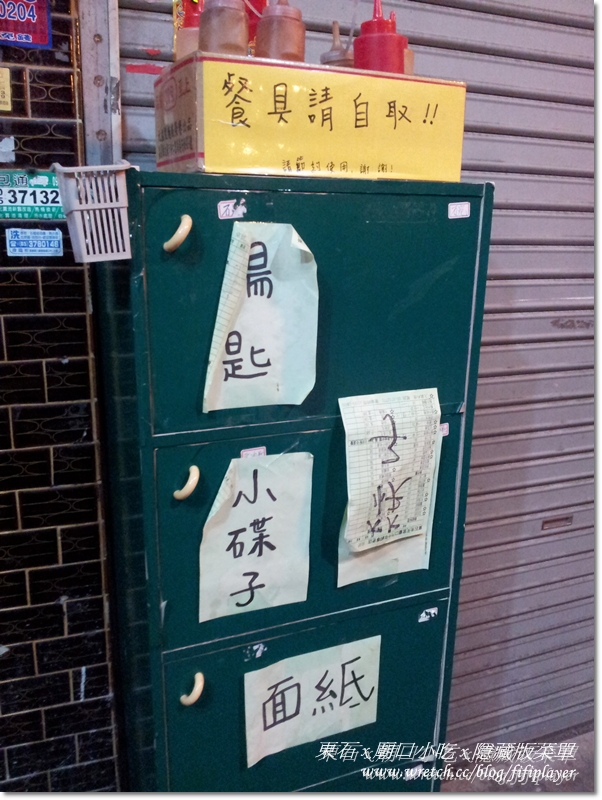 0204
餐具請自取!!
請節約使用,謝謝!
37132
洗
3780148
湯
匙
小
碟
子
面紙
東石 x 廟口小吃 x 隱藏版菜單
www.wretch.cc/blog/fifiplayer